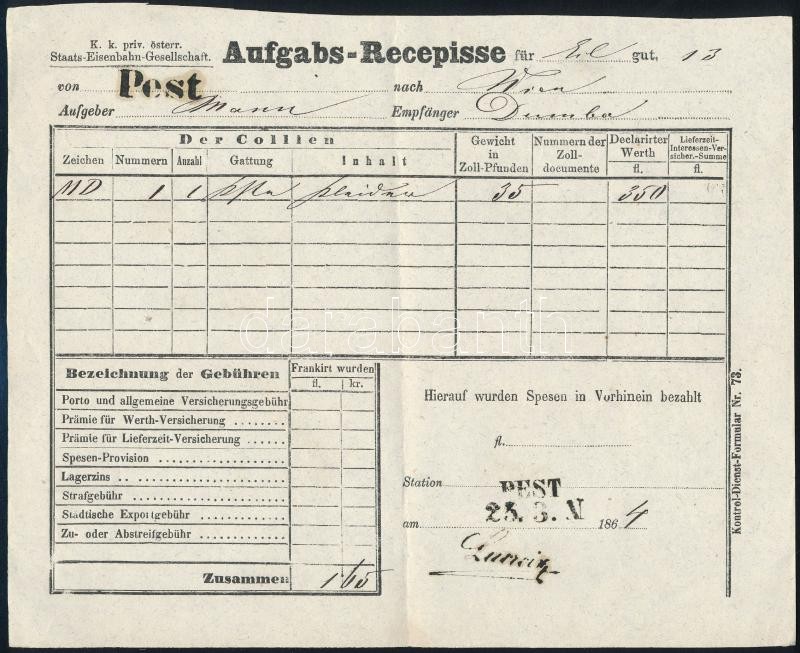 K. k. priv. österr.
Staats-Eisenbahn-Gesellschaft.
Aufgabs-Recepisse für Eil gut. 13
von Pest nach Wien
Aufgeber Mann Empfänger Dumba
Der Collien
Zeichen Nummern Anzahl Gattung Inhalt Gewicht in Zoll-Pfunden Nummern der Zoll-documente Declarirter Werth fl. Lieferzeit-Interessen-Versicher.-Summe fl.
MD 1 1 Kste Kleider 35 350
Bezeichnung der Gebühren Frankirt wurden
fl. kr.
Porto und allgemeine Versicherungsgebühr
Prämie für Werth-Versicherung
Prämie für Lieferzeit-Versicherung
Spesen-Provision
Lagerzins
Strafgebühr
Städtische Expeitgebühr
Zu- oder Abstreifgebühr
Zusammen 1 65
Hierauf wurden Spesen in Vorhinein bezahlt
fl.
Station PEST
am 25. 3. N 1864
Kontrol-Dienst-Formular Nr. 73.
darabanth